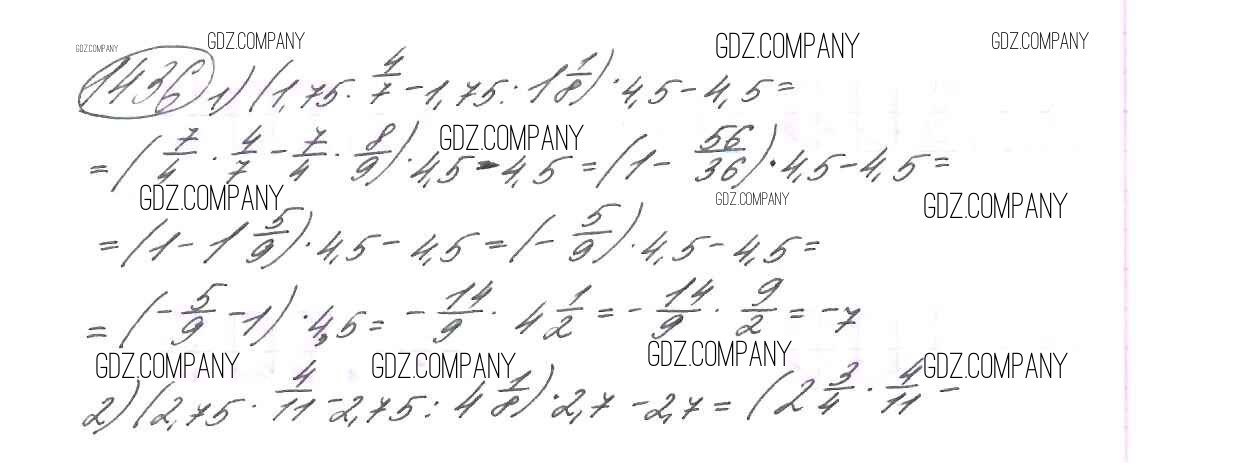 GDZ.COMPANY GDZ.COMPANY GDZ.COMPANY GDZ.COMPANY
1436 1) (1,75 · 4/7 - 1,75 : 1 1/8) · 4,5 - 4,5 =
GDZ.COMPANY
= (7/4 · 4/7 - 7/4 · 8/9) · 4,5 - 4,5 = (1 - 56/36) · 4,5 - 4,5 =
GDZ.COMPANY GDZ.COMPANY GDZ.COMPANY
= (1 - 1 5/9) · 4,5 - 4,5 = (- 5/9) · 4,5 - 4,5 =
= (- 5/9 - 1) · 4,5 = - 14/9 · 4 1/2 = - 14/9 · 9/2 = -7
GDZ.COMPANY GDZ.COMPANY GDZ.COMPANY GDZ.COMPANY
2) (2,75 · 4/11 - 2,75 : 4 1/8) · 2,7 - 2,7 = (2 3/4 · 4/11 -